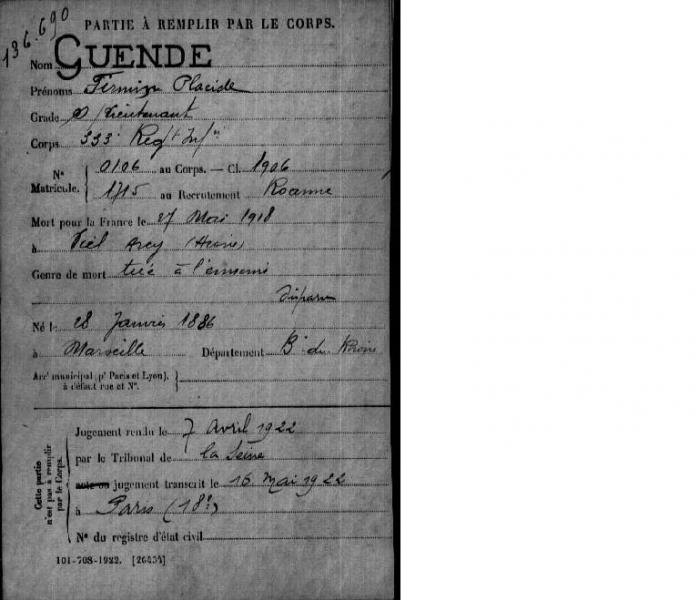 136.690
PARTIE À REMPLIR PAR LE CORPS.
Nom GUENDE
Prénoms Firmin Placide
Grade S/Lieutenant
Corps 333e Regt Infie
Nos Matricule. { 0106 au Corps. — Cl. 1906
1715 au Recrutement Roanne
Mort pour la France le 27 Mai 1918
à Viel Arcy (Aisne)
Genre de mort tué à l'ennemi
disparu
Né le 28 Janvier 1886
à Marseille Département B. du Rhône
Arrt municipal (pr Paris et Lyon), à défaut rue et No. }
Cette partie n'est pas à remplir par le Corps.
Jugement rendu le 7 Avril 1922
par le Tribunal de la Seine
acte ou jugement transcrit le 16 Mai 1922
à Paris (18e)
No du registre d'état civil
101-708-1922. [26434]